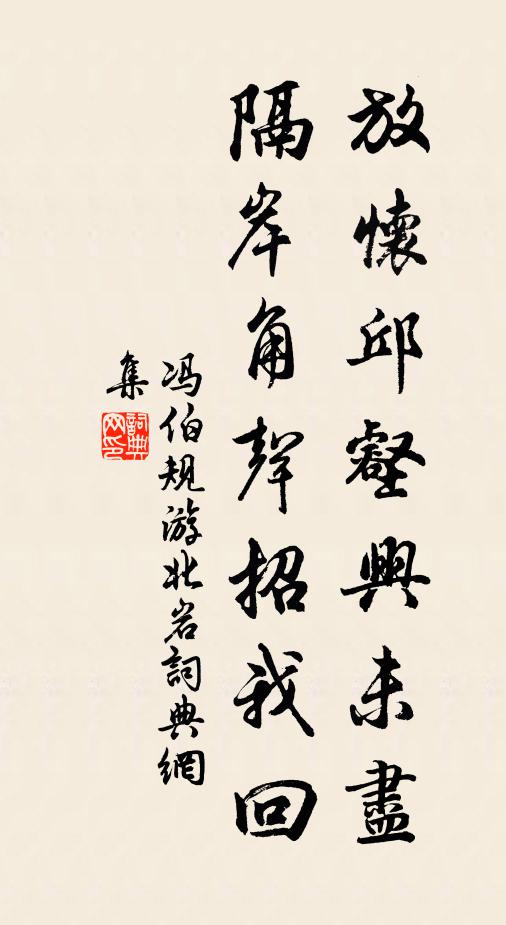 放懷邱壑興未盡
隔岸角聲招我回
冯伯规游北岩詞典網
集
詞典
网印